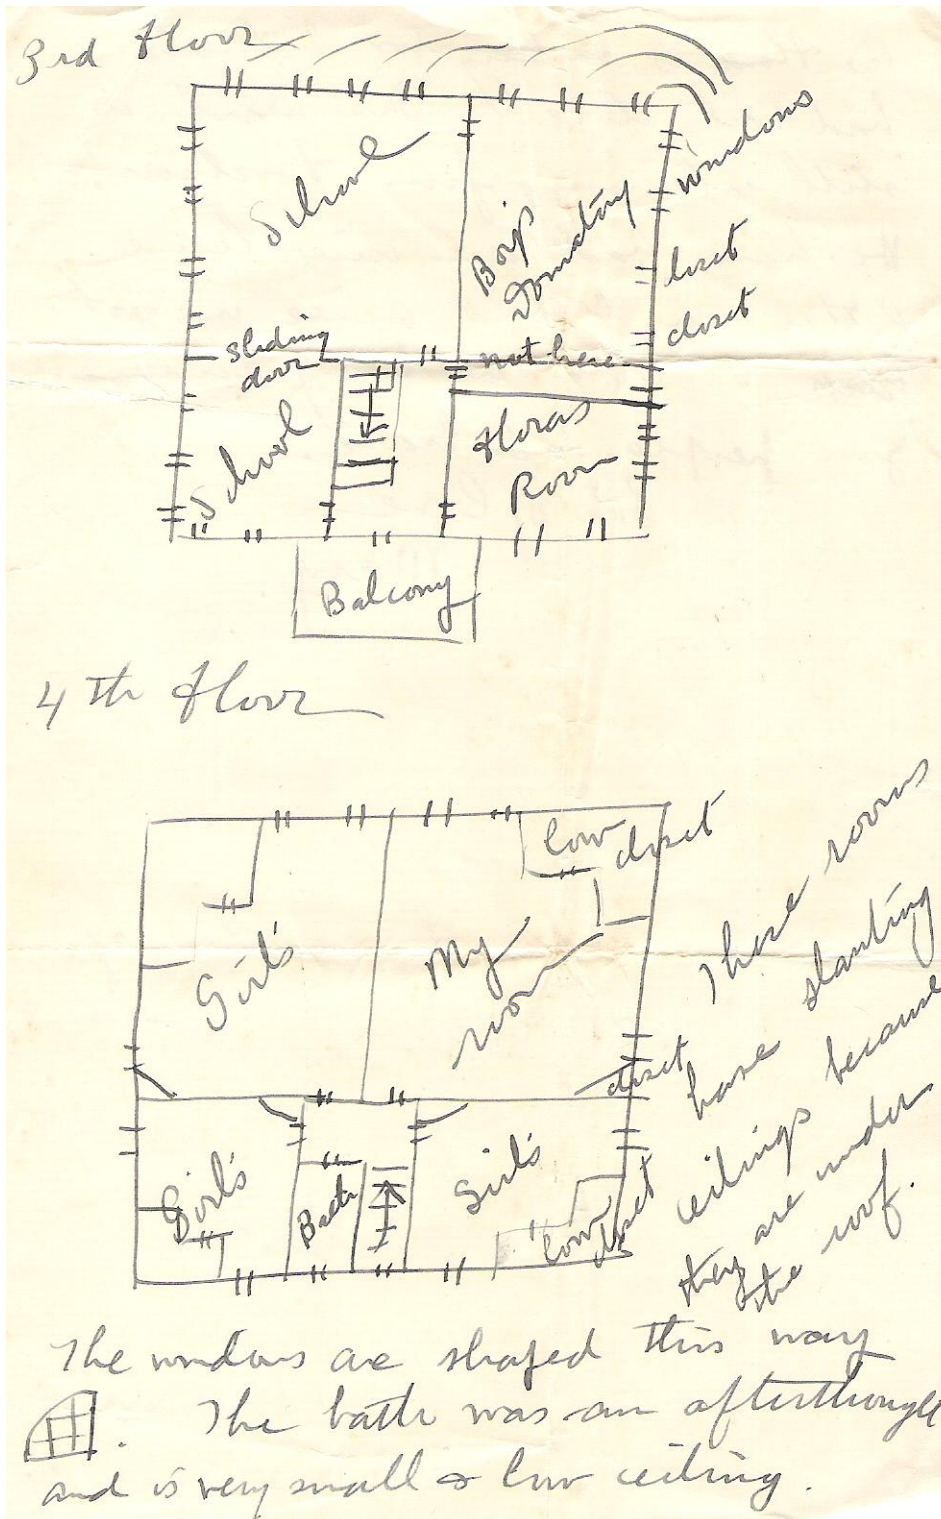 3rd floor
windows
School
Boys
Dormatory
closet
closet
sliding
door
not here
School
Floras
Room
Balcony
4th floor
low closet
Girl's
My
room
closet
Girl's
Bath
Girl's
low
closet
These rooms
have slanting
ceilings because
they are under
the roof.
The windows are shaped this way
. The bath was an afterthought
and is very small & low ceiling.